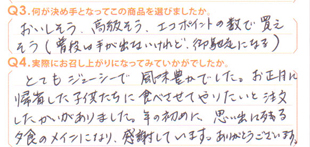 Q3.何が決め手となってこの商品を選びましたか。
おいしそう、高級そう、エコポイントの数で買え
そう(普段は手が出ないけれど、御馳走になる)
Q4.実際にお召し上がりになってみていかがでしたか。
とてもジューシーで 風味豊かでした。お正月に
帰省した子供たちに食べさせてやりたいと注文
したかいがありました。年の初めに 思い出に残る
夕食のメインになり、感謝しています。ありがとうございます。